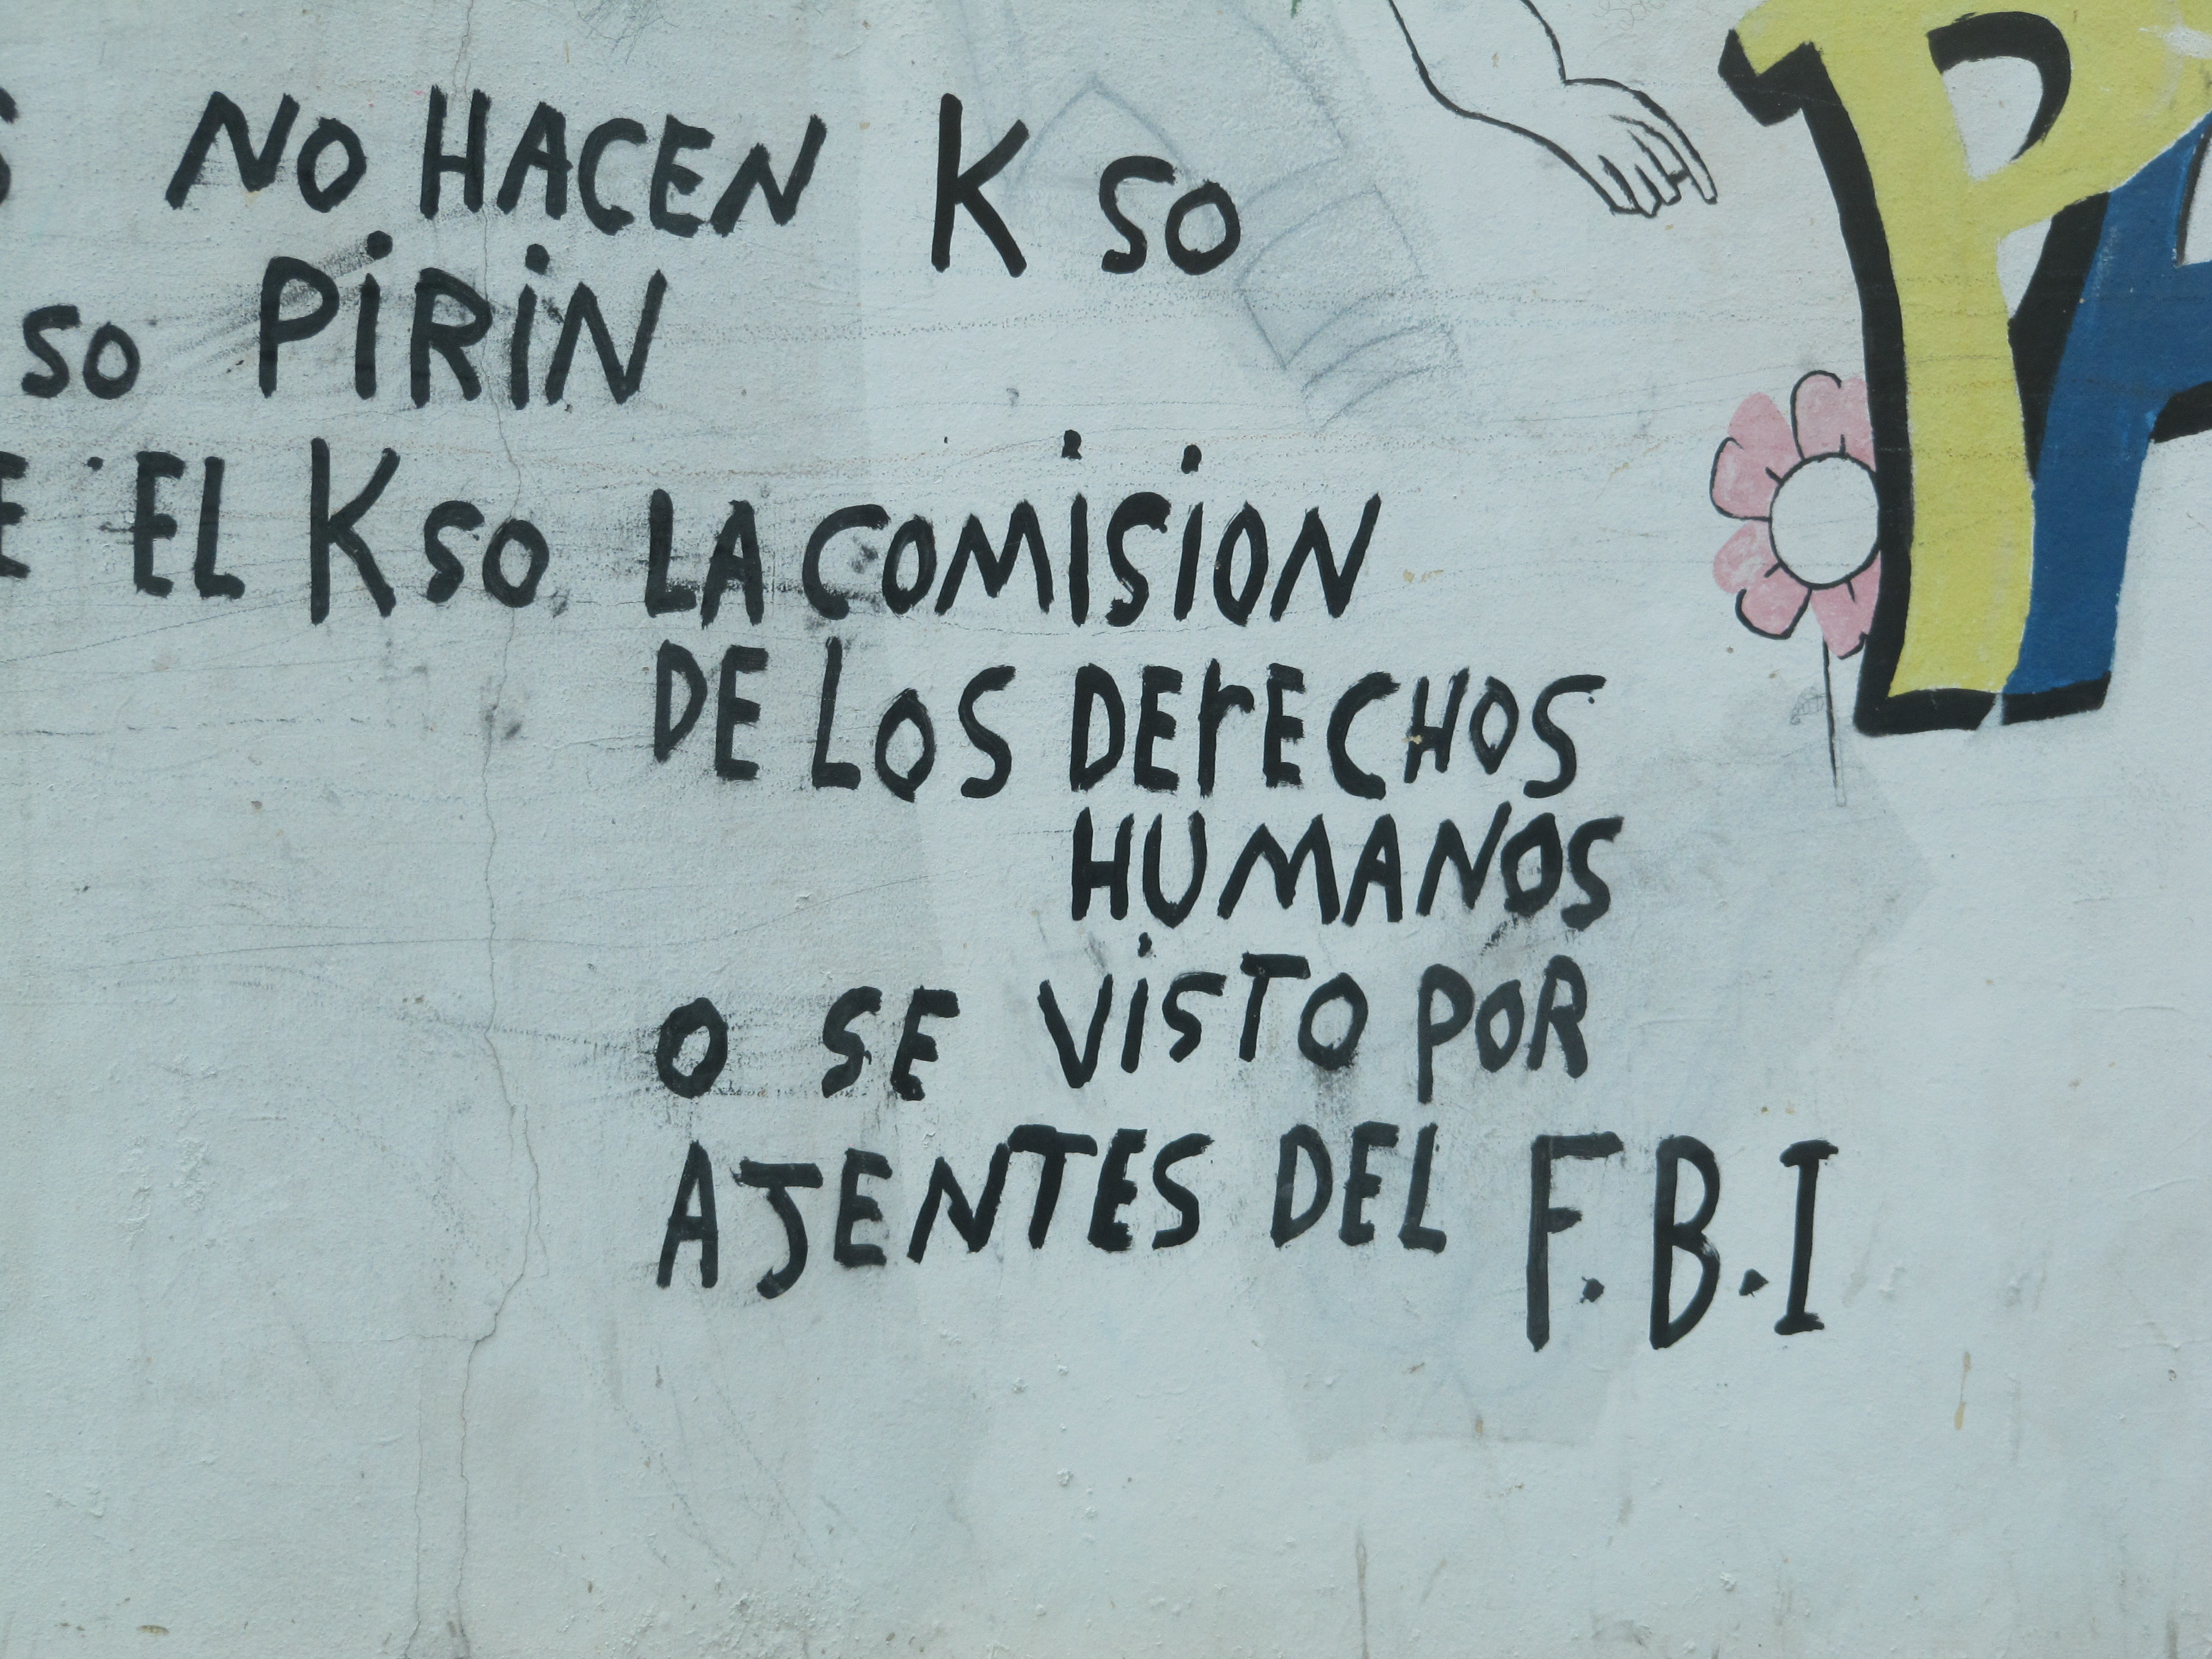 S NO HACEN K SO
SO PIRIN
E EL K SO LA COMISION
DE LOS DErECHOS
HUMANOS
O SE VISTO POR
AJENTES DEL F.B.I
PA